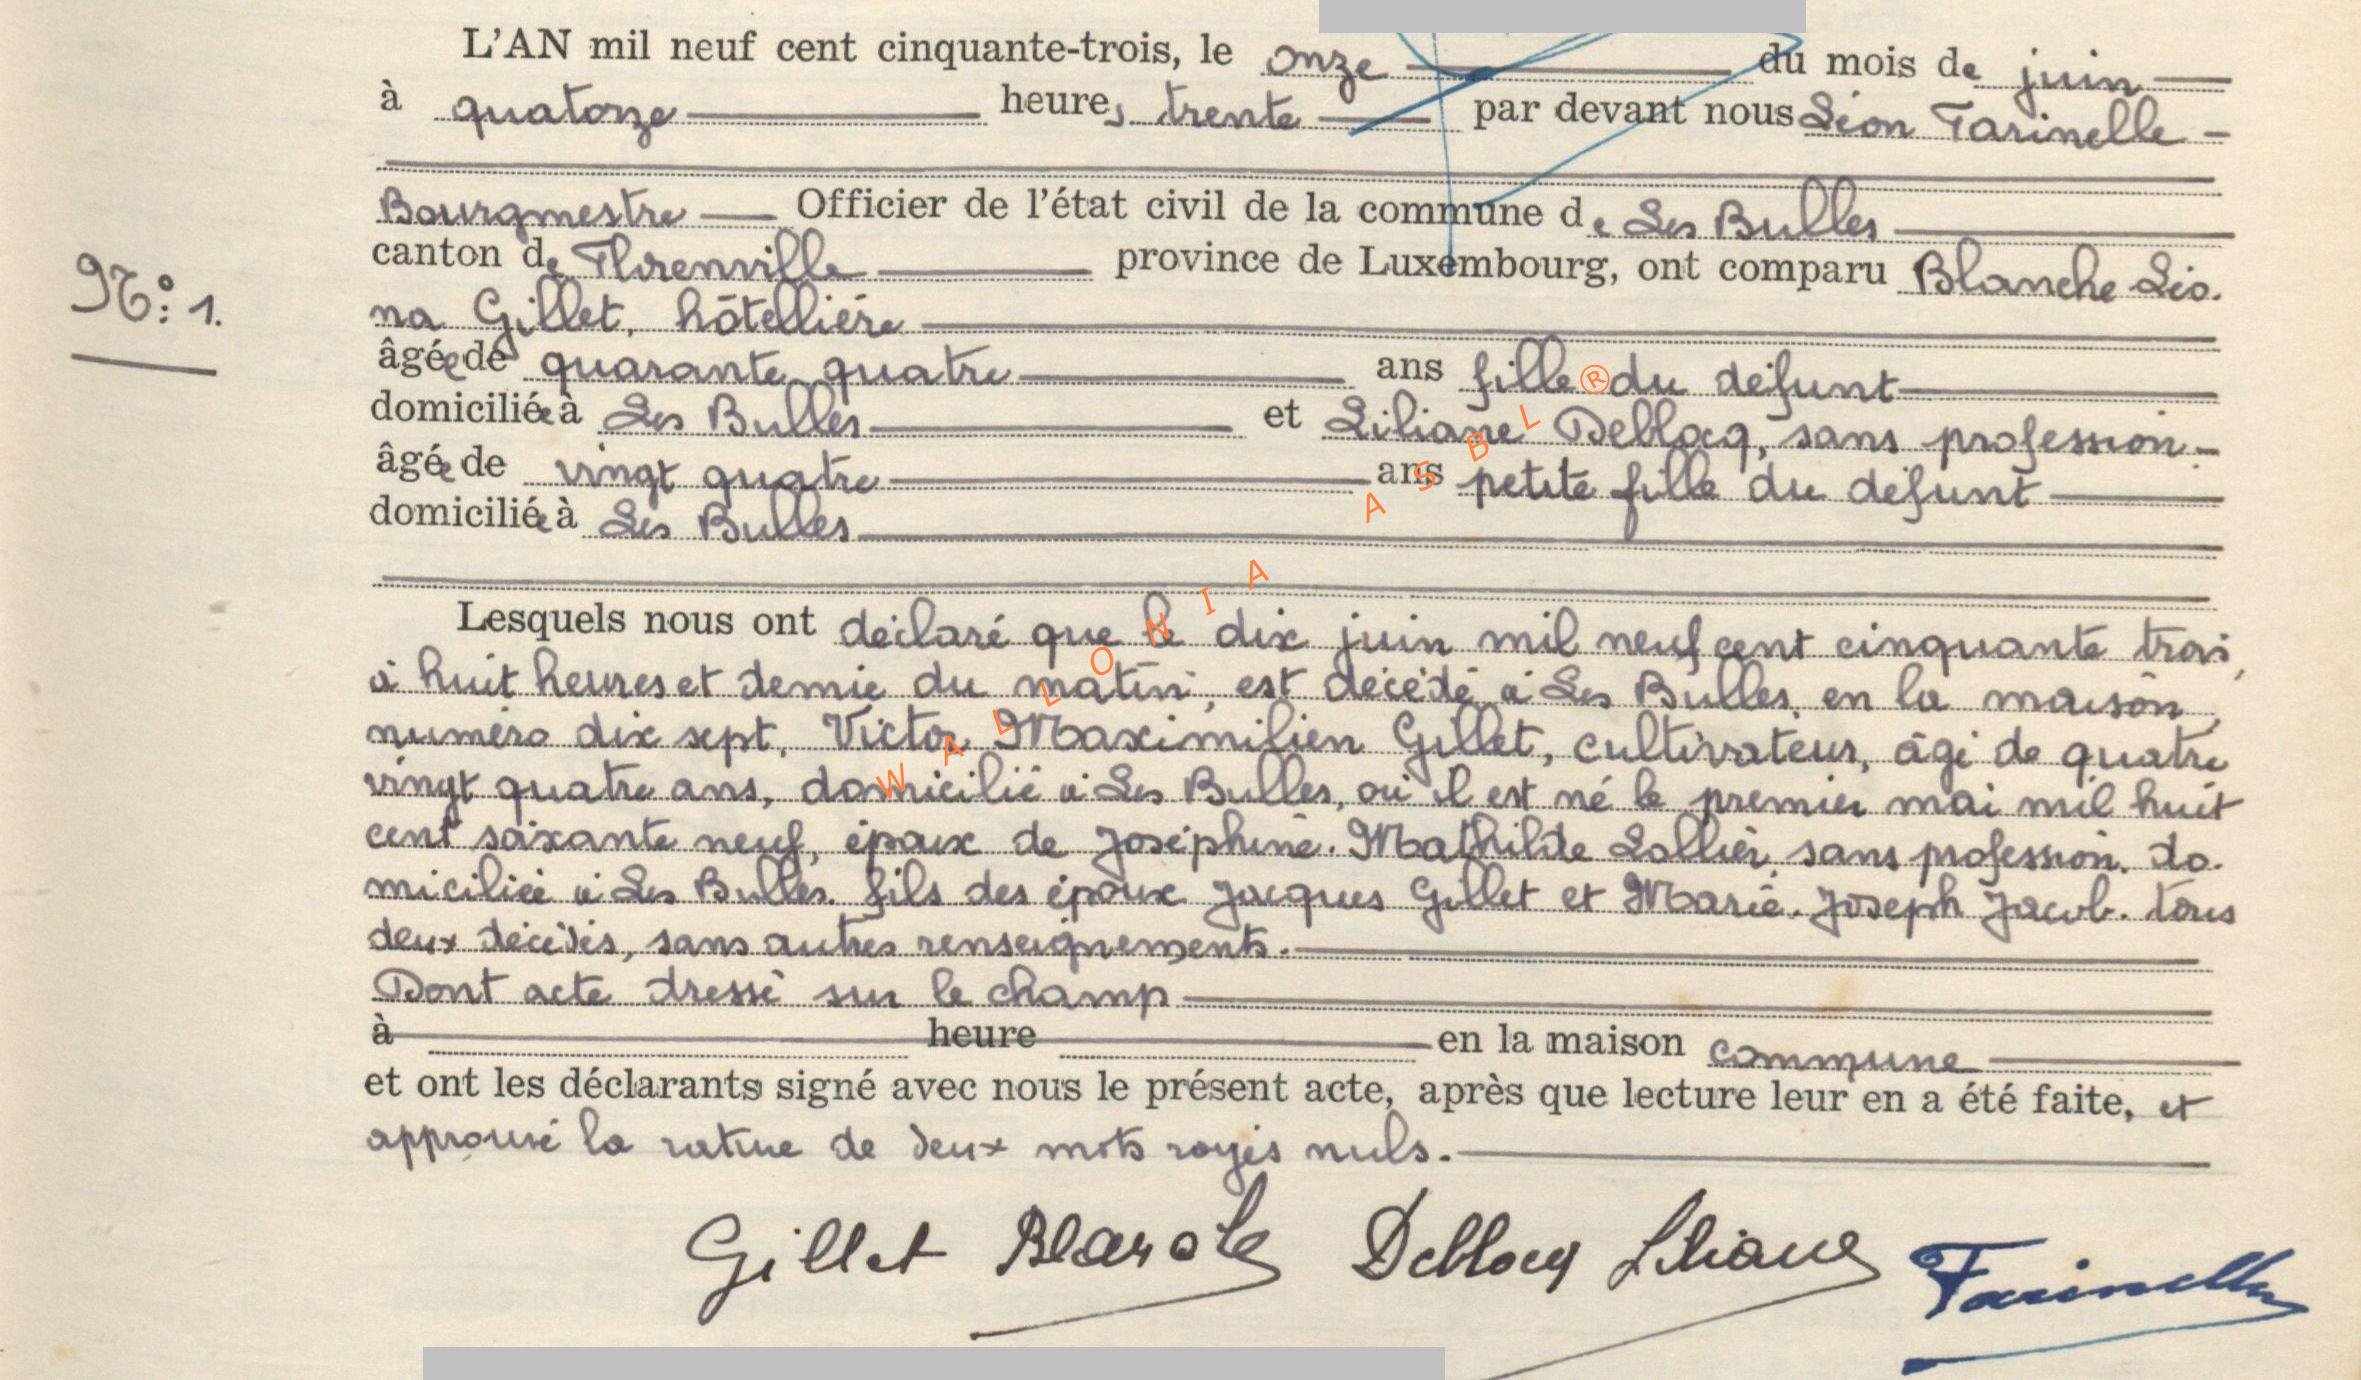 L'AN mil neuf cent cinquante-trois, le onze du mois de juin
à quatorze heures trente par devant nous Léon Farinelle
Bourgmestre Officier de l'état civil de la commune de Les Bulles
canton de Florenville province de Luxembourg, ont comparu Blanche Léo-
N°: 1.
na Gillet, hôtellière
âgée de quarante quatre ans fille du défunt
domiciliée à Les Bulles et Liliane Deblocq, sans profession
âgée de vingt quatre ans petite fille du défunt
domiciliée à Les Bulles
Lesquels nous ont déclaré que le dix juin mil neuf cent cinquante trois,
à huit heures et demie du matin, est décédé à Les Bulles, en la maison,
numéro dix sept, Victor Maximilien Gillet, cultivateur, âgé de quatre
vingt quatre ans, domicilié à Les Bulles, où il est né le premier mai mil huit
cent soixante neuf, époux de Joséphine-Mathilde Lallier, sans profession, do-
miciliée à Les Bulles. fils des époux Jacques Gillet et Marie-Joseph Jacob. tous
deux décédés, sans autres renseignements.
Dont acte dressé sur le champ
à heure en la maison commune
et ont les déclarants signé avec nous le présent acte, après que lecture leur en a été faite, et
approuvé la rature de deux mots rayés nuls.
Gillet Blanche Deblocq Liliane Farinelle
WALLONIA ASBL ®